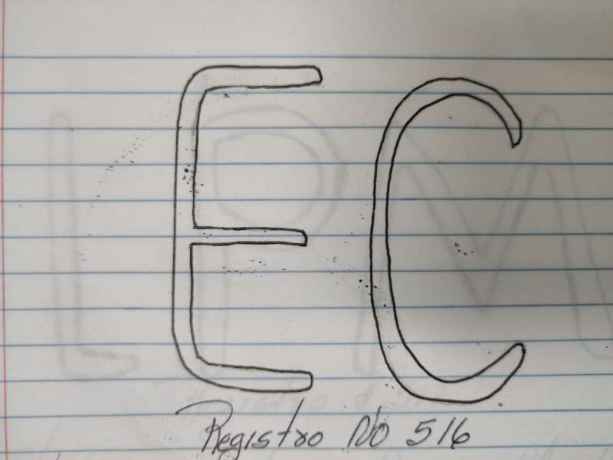 EC
Registro No 516